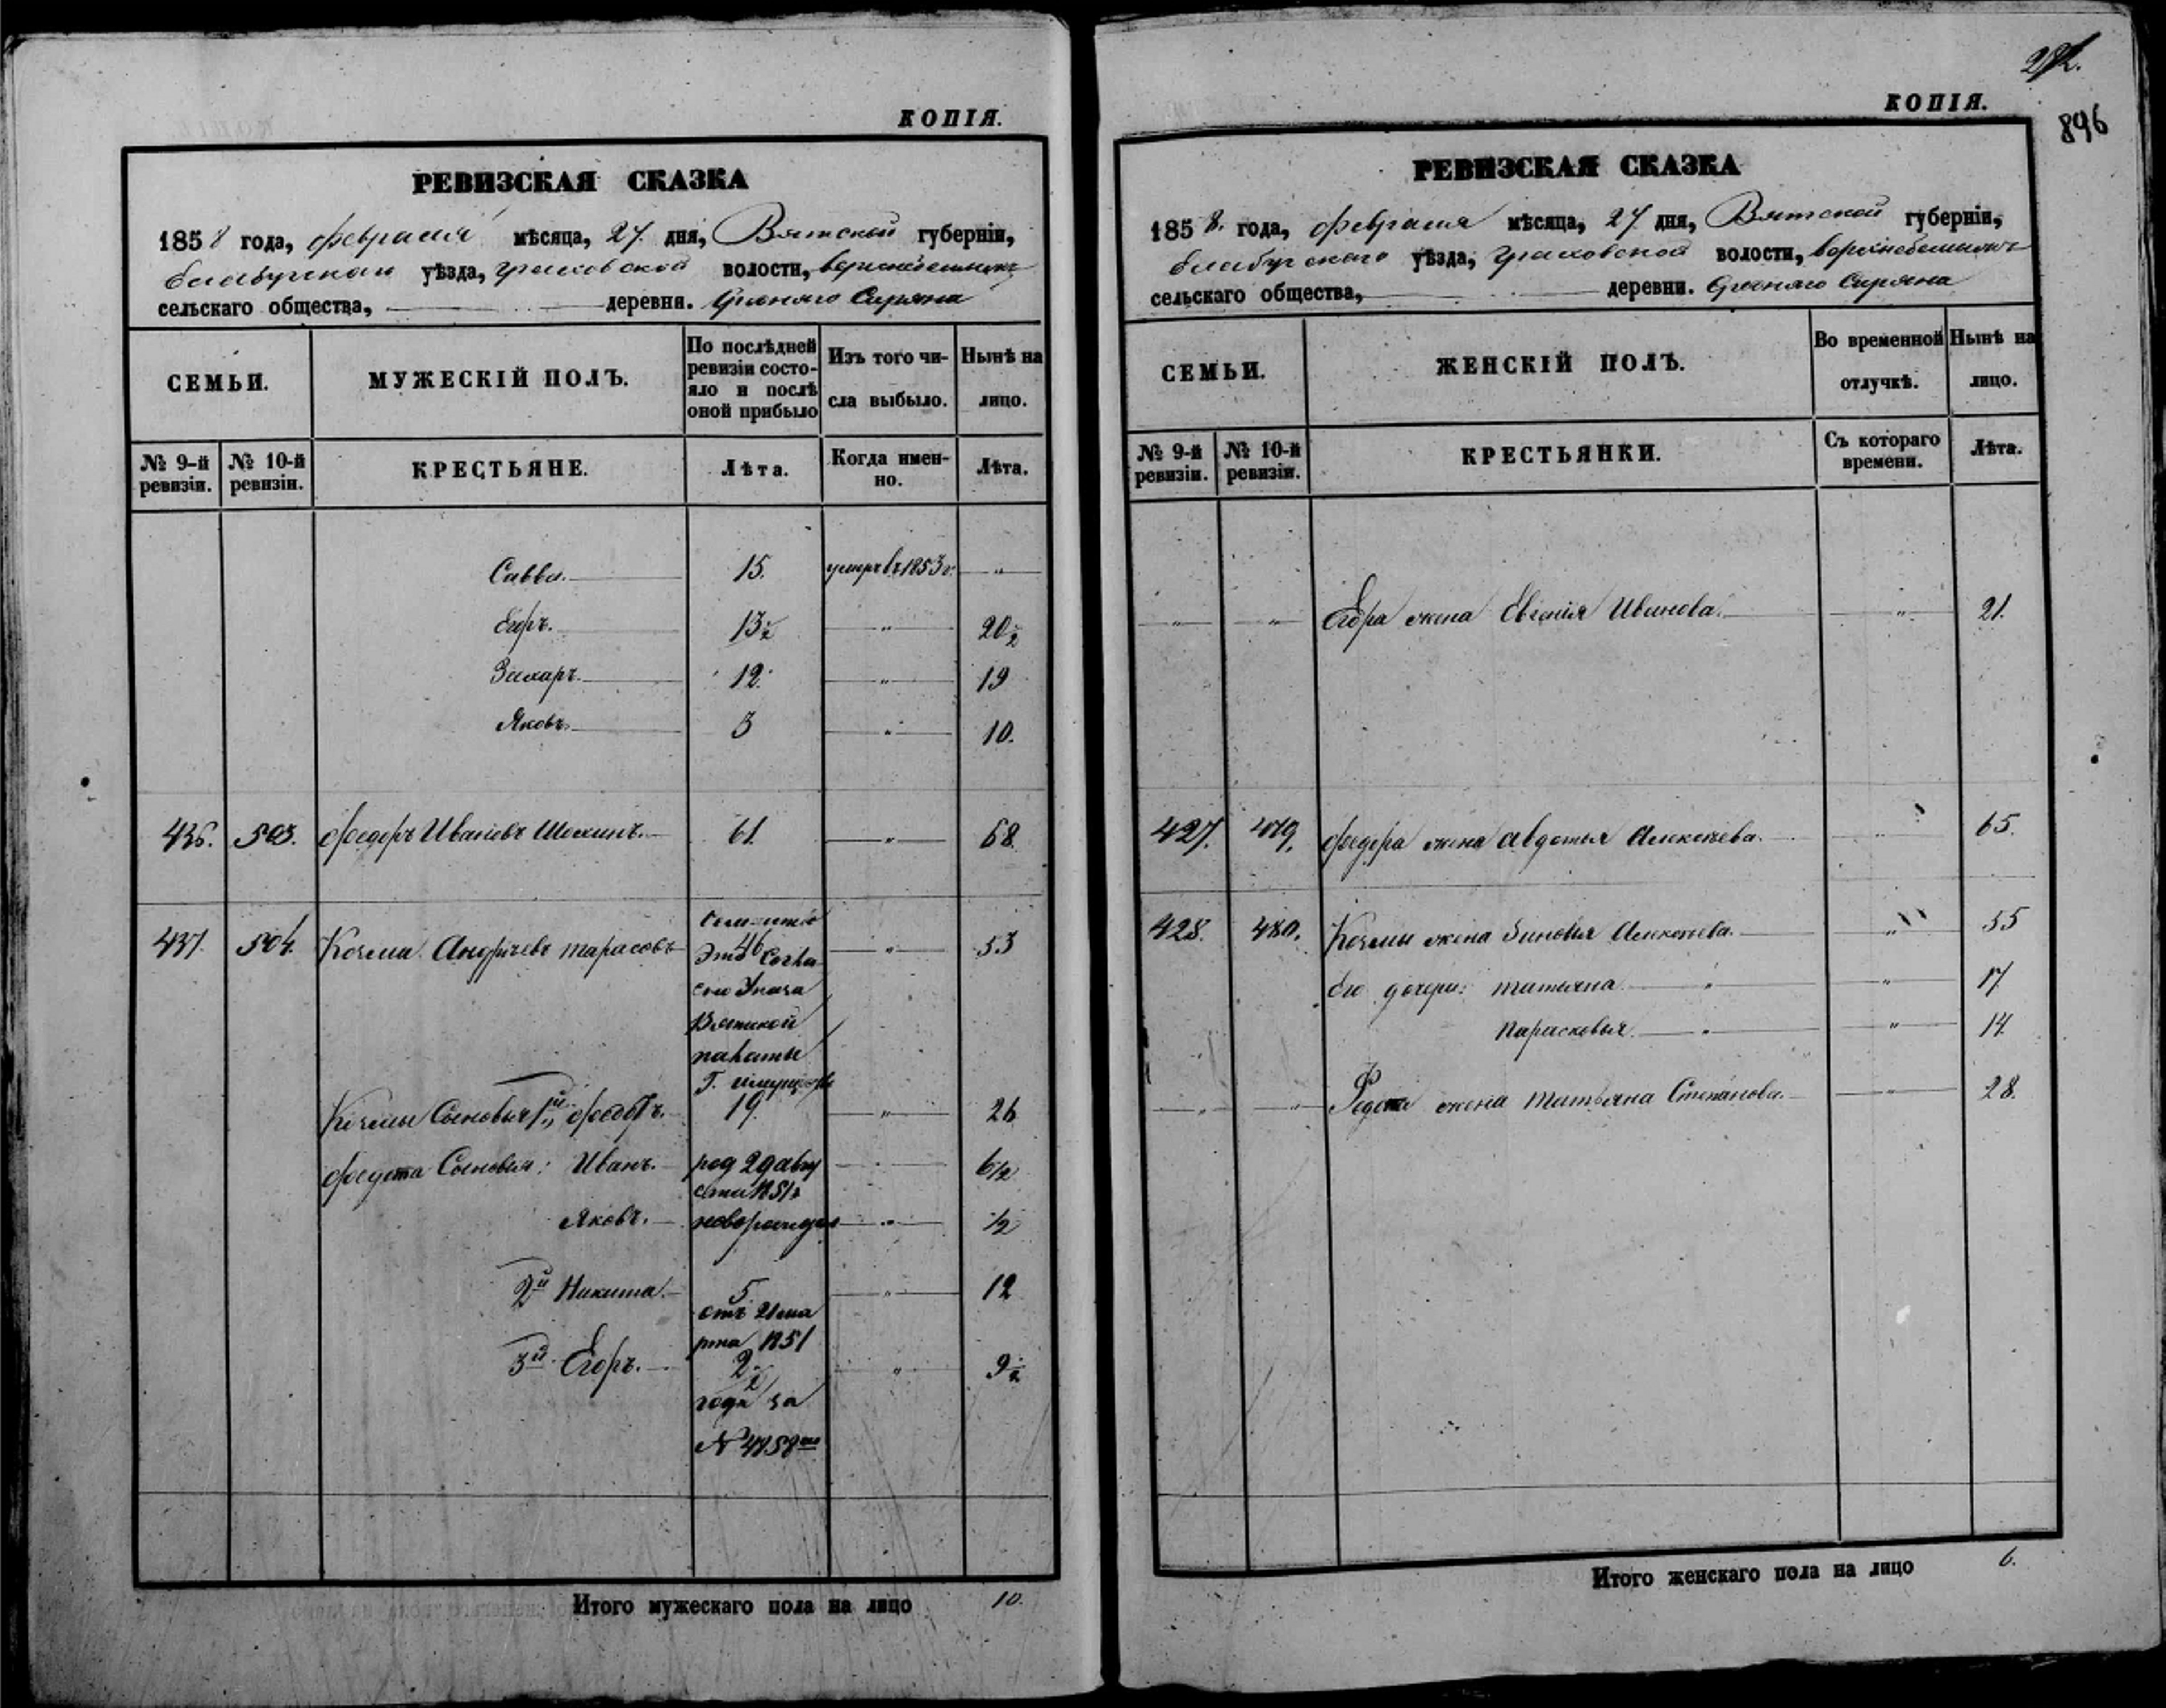 КОПІЯ.
РЕВИЗСКАЯ СКАЗКА
1858 года, февраля мѣсяца, 27 дня, Вятской губерніи,
Елабугскаго уѣзда, Граховской волости,
сельскаго общества, деревни.
СЕМЬИ.
МУЖЕСКІЙ ПОЛЪ.
По послѣдней ревизіи состо-
яло и послѣ оной прибыло
Изъ того чи-
сла выбыло.
Нынѣ на
лицо.
№ 9-й ревизіи.
№ 10-й ревизіи.
КРЕСТЬЯНЕ.
Лѣта.
Когда имен-
но.
Лѣта.
Савва. 15. умеръ въ 1853 г. „
Егоръ. 13½ „ 20½
Захаръ. 12. „ 19
Яковъ. 3 „ 10.
436. 503. Федоръ Ивановъ 61. „ 68.
437. 504. Козма Андреевъ Тарасовъ 46 „ 53
Указа
Вятской
палаты
Г. имущ
Козмы Сыновья 1й Федотъ. 19. „ 26
Федота Сыновья: Иванъ. род 29 авгу
ста 1851 г „ 6½
Яковъ. новорожден „ ½
2й Никита. 5 „ 12
отъ 21 ма
рта 1851
3й Егоръ. 2½ „ 9½
года за
№ 4158
Итого мужескаго пола на лицо 10.
896
КОПІЯ.
РЕВИЗСКАЯ СКАЗКА
1858. года, февраля мѣсяца, 27 дня, Вятской губерніи,
Елабугскаго уѣзда, Граховской волости,
сельскаго общества, деревни.
СЕМЬИ.
ЖЕНСКІЙ ПОЛЪ.
Во временной
отлучкѣ.
Нынѣ на
лицо.
№ 9-й ревизіи.
№ 10-й ревизіи.
КРЕСТЬЯНКИ.
Съ котораго
времени.
Лѣта.
„ „ Егора жена Евгенія Иванова. „ 21.
427. 479. Федора жена Авдотья Алексѣева. „ 65.
428. 480. Козмы жена Зиновья Алексѣева. „ 55
Его дочери: Татьяна „ „ 17
Парасковья. „ „ 14.
„ „ Федота жена Татьяна Степанова. „ 28.
Итого женскаго пола на лицо 6.